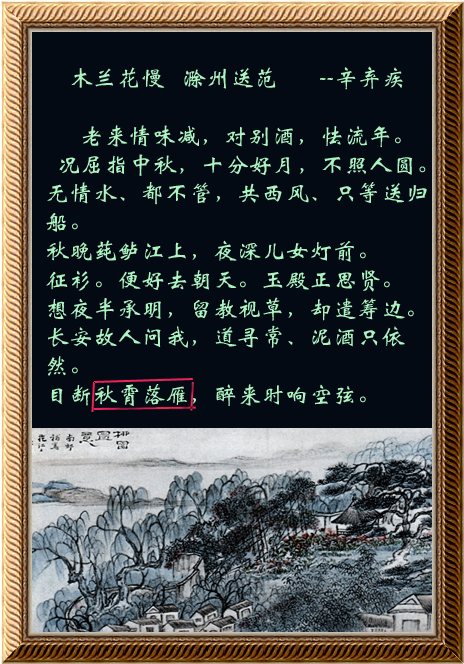 木兰花慢 滁州送范 --辛弃疾
老来情味减，对别酒，怯流年。
况屈指中秋，十分好月，不照人圆。
无情水、都不管，共西风、只等送归
船。
秋晚莼鲈江上，夜深儿女灯前。
征衫。便好去朝天。玉殿正思贤。
想夜半承明，留教视草，却遣筹边。
长安故人问我，道寻常、泥酒只依
然。
目断秋霄落雁，醉来时响空弦。